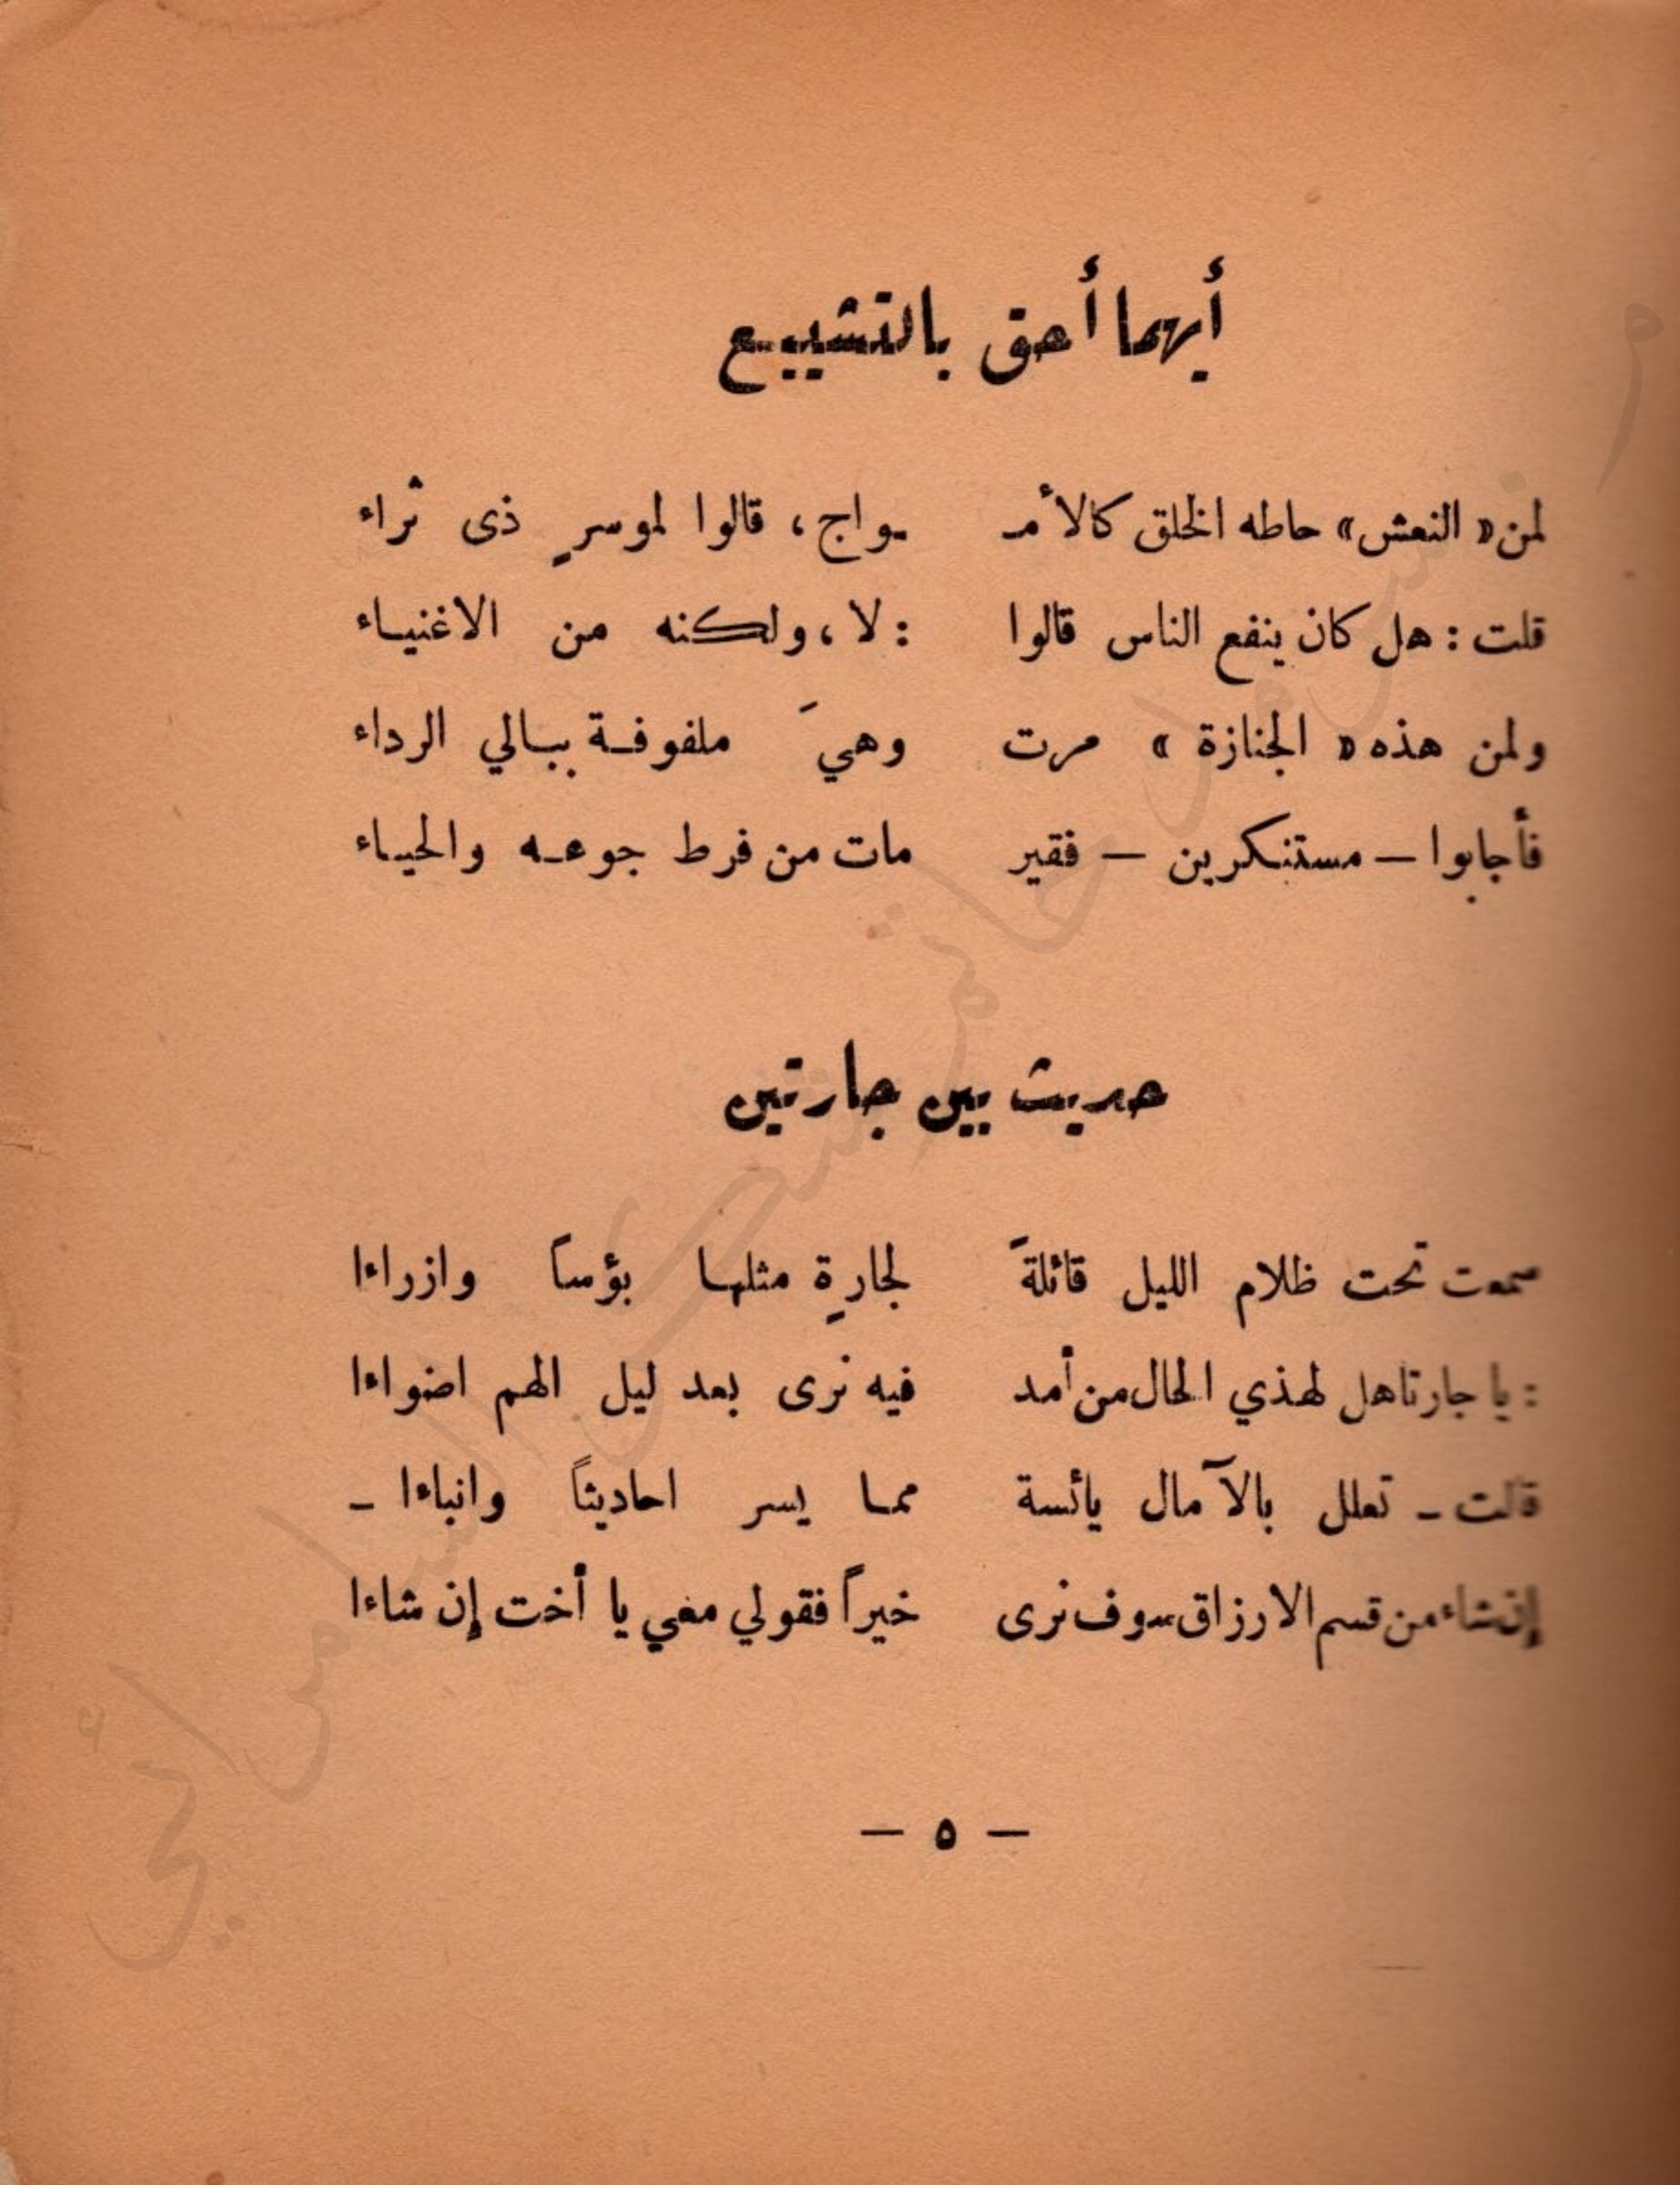 أيهما أحق بالتشييع
لمن « النعش » حاطه الخلق كالأمـ ـواج ، قالوا لموسرٍ ذى ثراء
قلت : هل كان ينفع الناس قالوا : لا ، ولكنه من الاغنيـاء
ولمن هذه « الجنازة » مرت وهيَ ملفوفـة ببـالي الرداء
فأجابوا — مستنكرين — فقير مات من فرط جوعـه والحيـاء
حديث بين جارتين
سمعت تحت ظلام الليل قائلةً لجارةٍ مثلهـا بؤساً وازراءا
: يا جارتا هل لهذي الحال من أمد فيه نرى بعد ليل الهم اضواءا
قالت ـ تعلل بالآمال يائسة ممـا يسر احاديثاً وانباءا ـ
إن شاء من قسم الارزاق سوف نرى خيراً فقولي معي يا أخت إن شاءا
— ٥ —